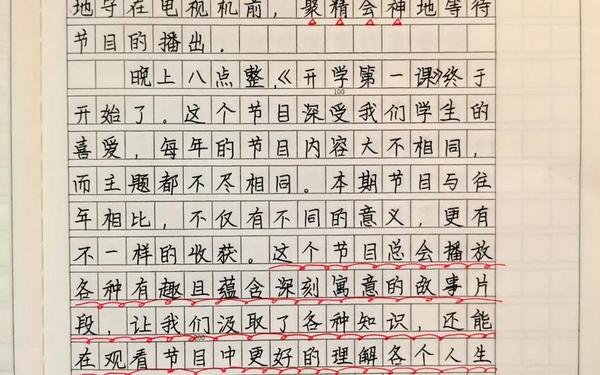 地守在电视机前，聚精会神地等待
节目的播出．
晚上八点整，《开学第一课》终于
100
开始了。这个节目深受我们学生的
喜爱，每年的节目内容大不相同，
而主题都不尽相同。本期节目与往
年相比，不仅有不同的意义，更有
不一样的收获。这个节目总会播放
各种有趣且蕴含深刻寓意的故事片
段，让我们汲取了各种知识，还能
200
在观看节目中更好的理解各个人生